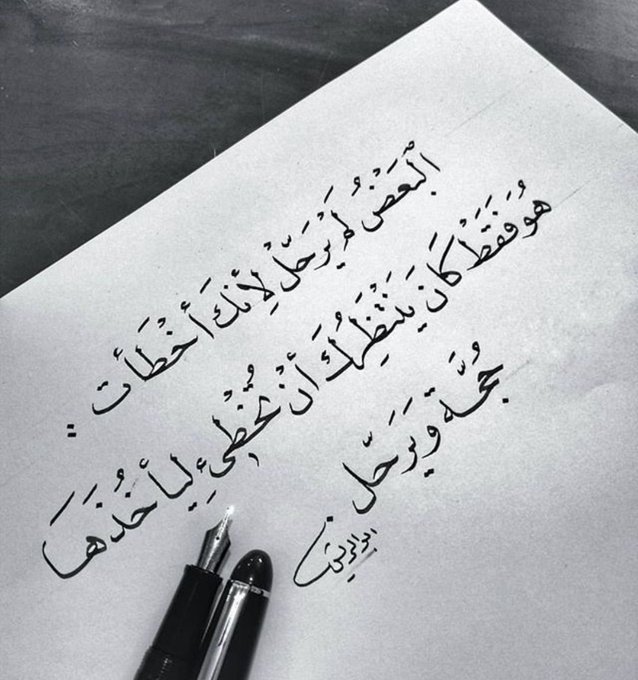 اَلْبَعَضْ لَمْ يَرْحَلْ لِأنَكَ أخْطَأت :
هُوَ فَقَطْ كَانَ يَنْتَظِرُكَ أنْ تُخْطِئ لِيأخُذَهَا
حُجَّة وَيَرَحَل .